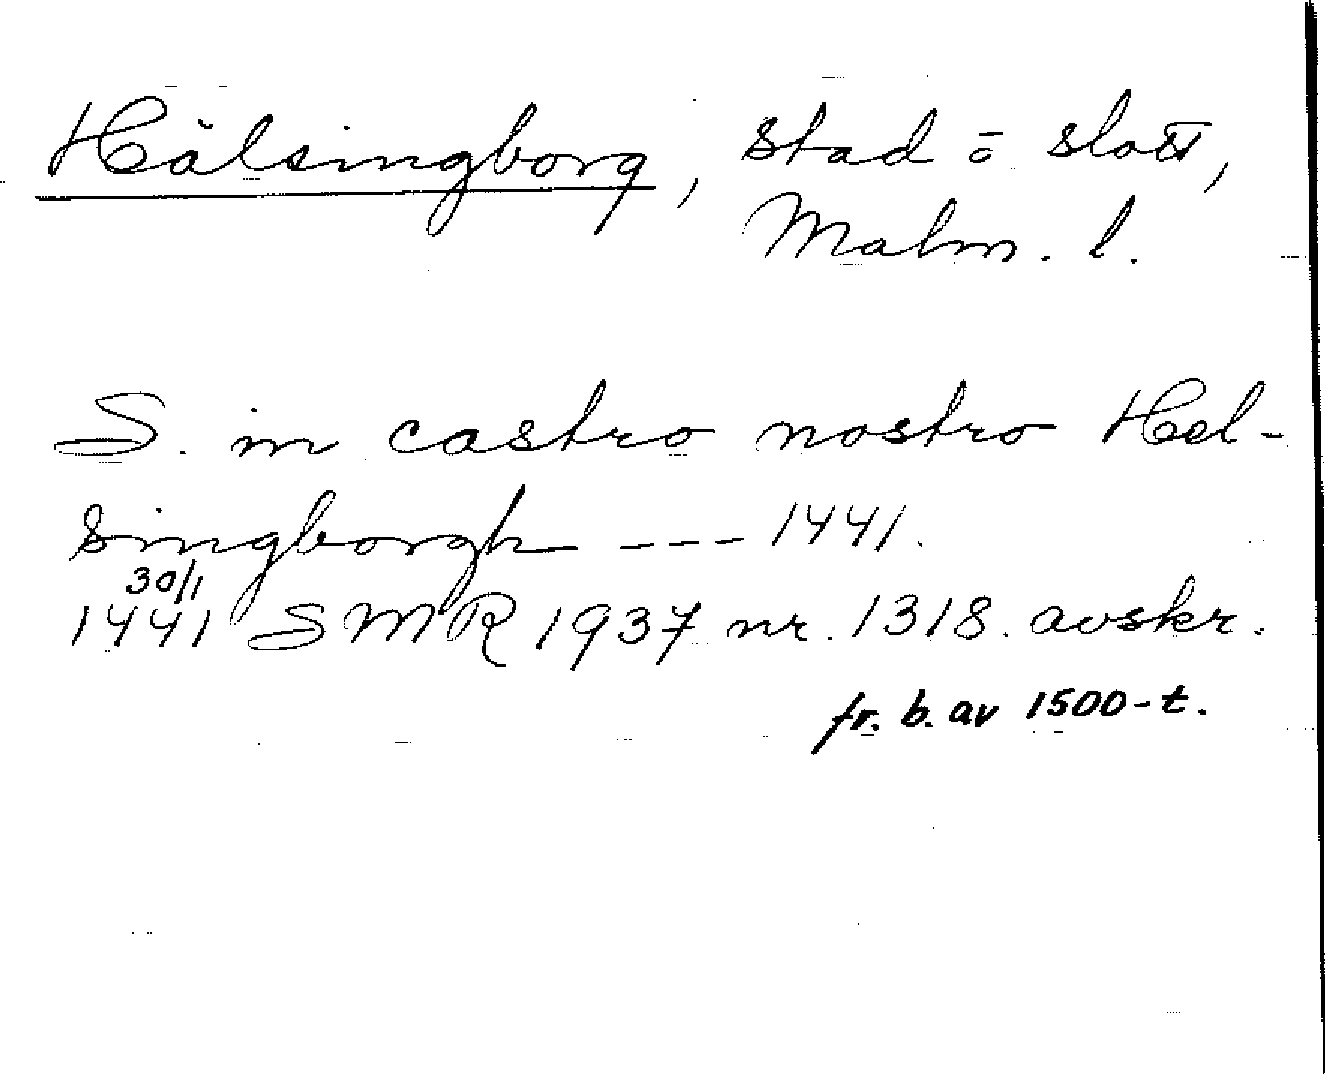 Hälsingborg, stad o slott,
Malm. l.
S. in castro nostro Hel-
singborgh --- 1441.
30/1
1441 SMR 1937 nr. 1318. avskr.
fr. b. av 1500-t.